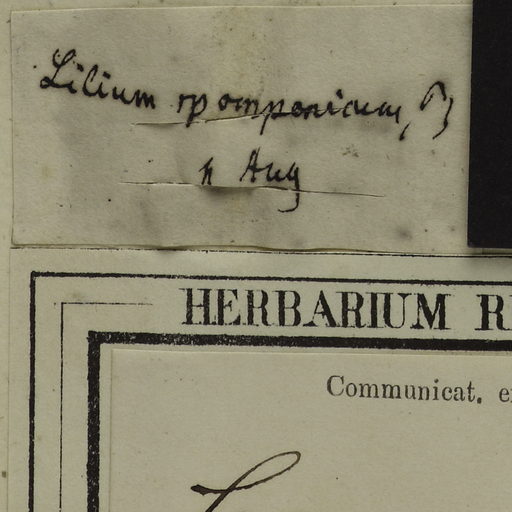 Lilium pomponicum,
Aug
HERBARIUM
Communicat.